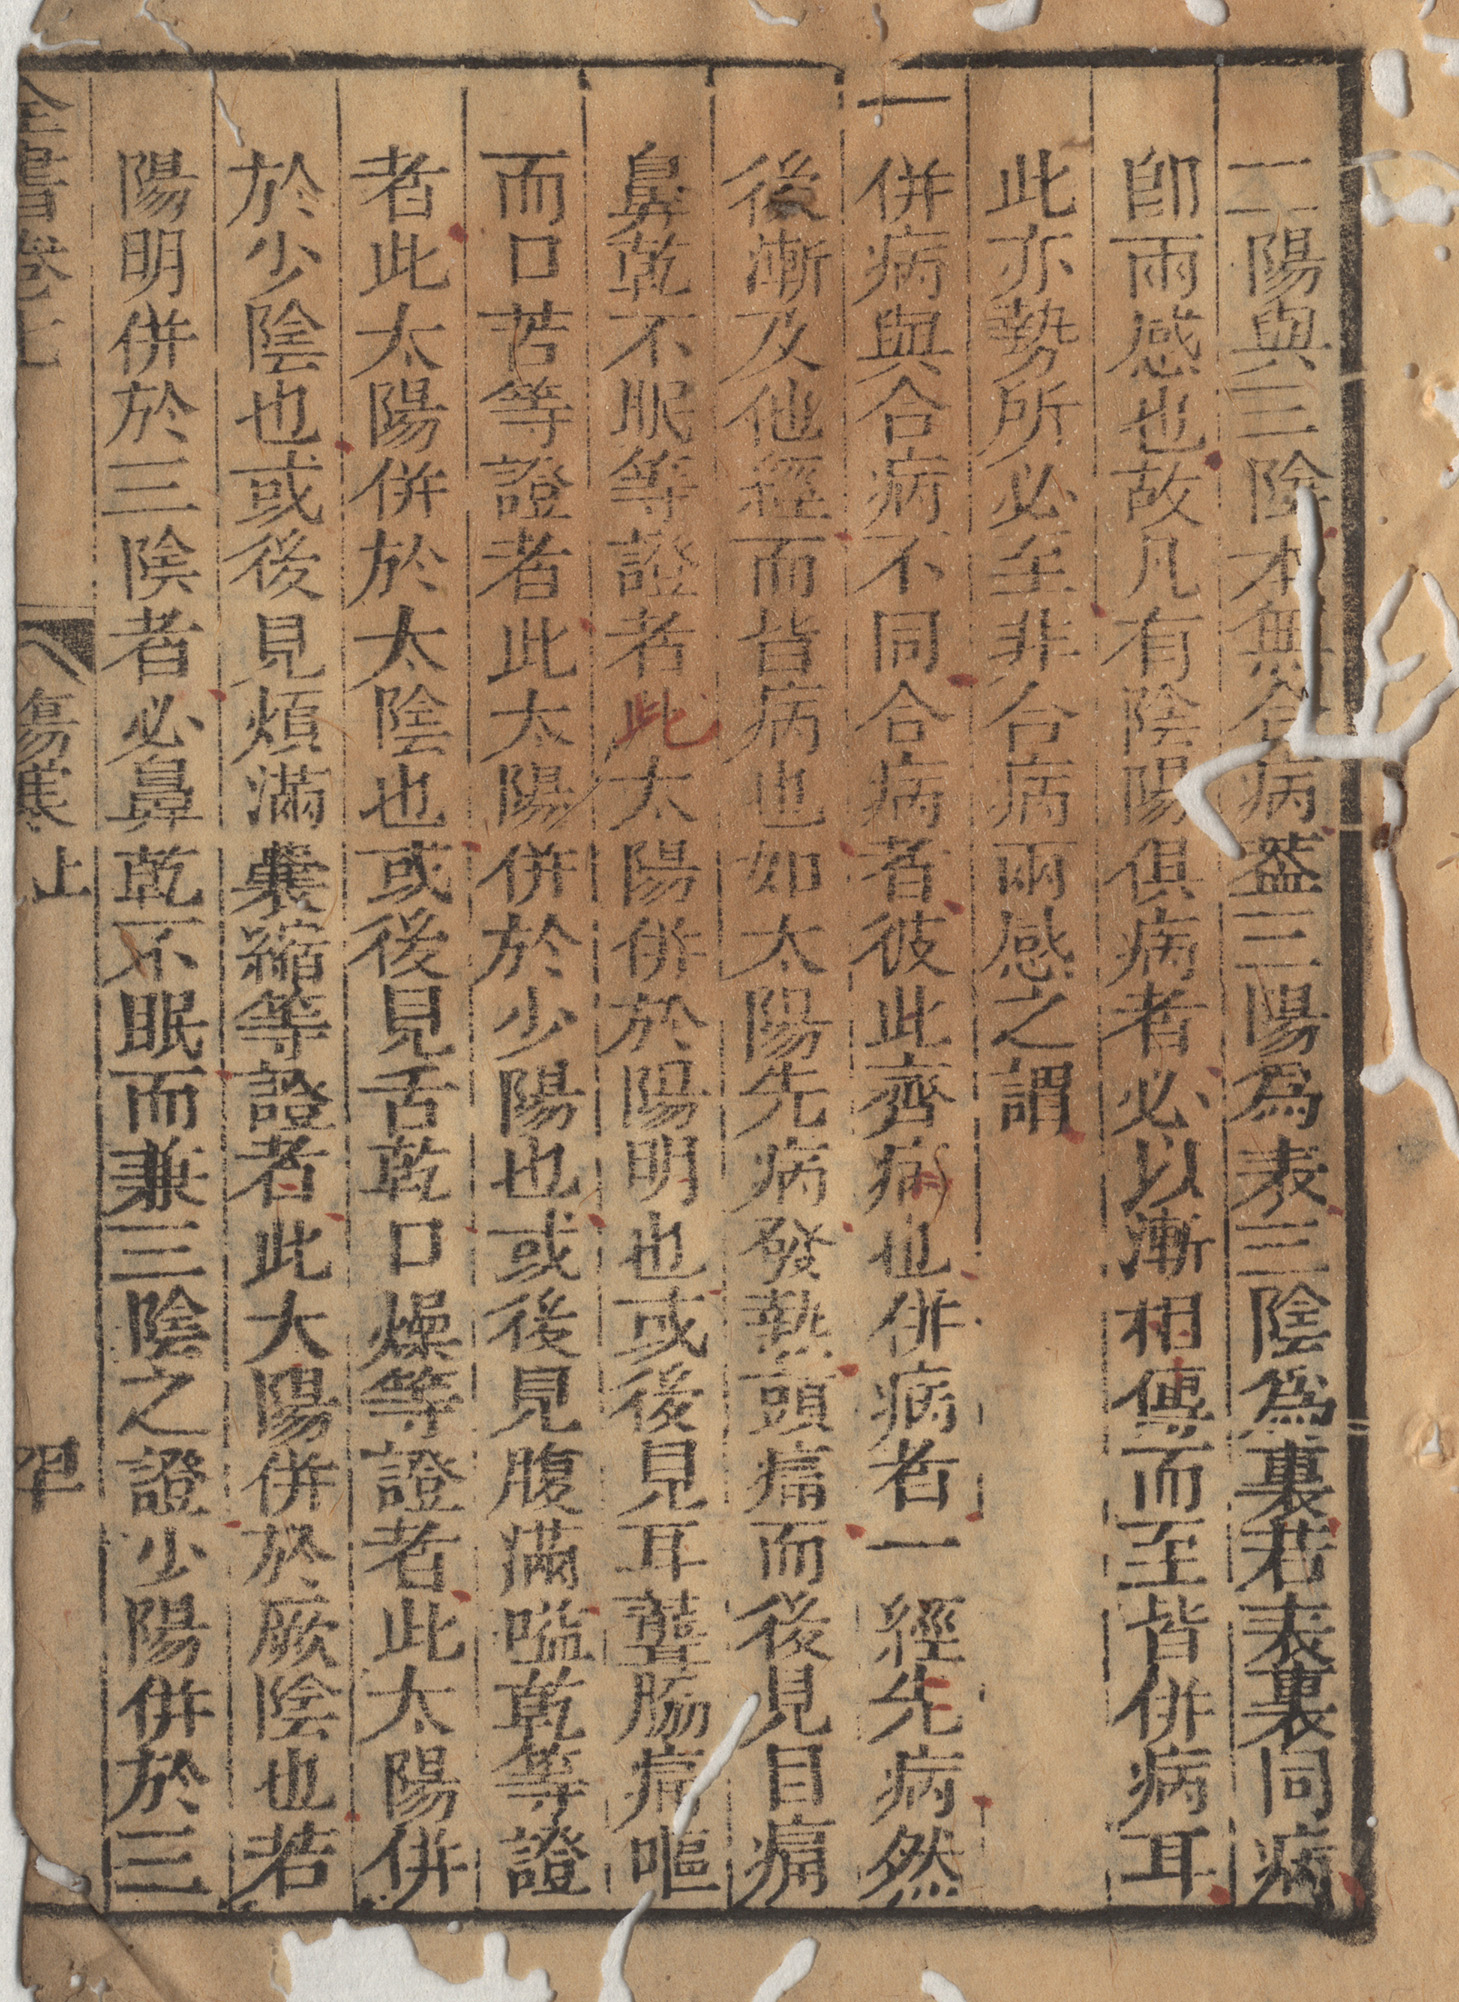 三陽與三陰本無合病葢三陽為表三陰爲裏若表裏同病
卽兩感也故凡有陰陽俱病者必以漸相傳而至皆併病耳
此亦勢所必至非合病兩感之謂
一併病與合病不同合病者彼此齊病也併病者一經先病然
後漸及他經而皆病也如太陽先病發熱頭痛而後見目痛
鼻乾不眠等證者此太陽併於陽明也或後見耳聾脇痛嘔
而口苦等證者此太陽併於少陽也或後見腹滿嗌乾等證
者此太陽併於太陰也或後見舌乾口燥等證者此太陽併
於少陰也或後見煩滿囊縮等證者此太陽併於厥陰也若
陽明併於三陰者必鼻乾不眠而兼三陰之證少陽併於三
全書卷七 傷寒上